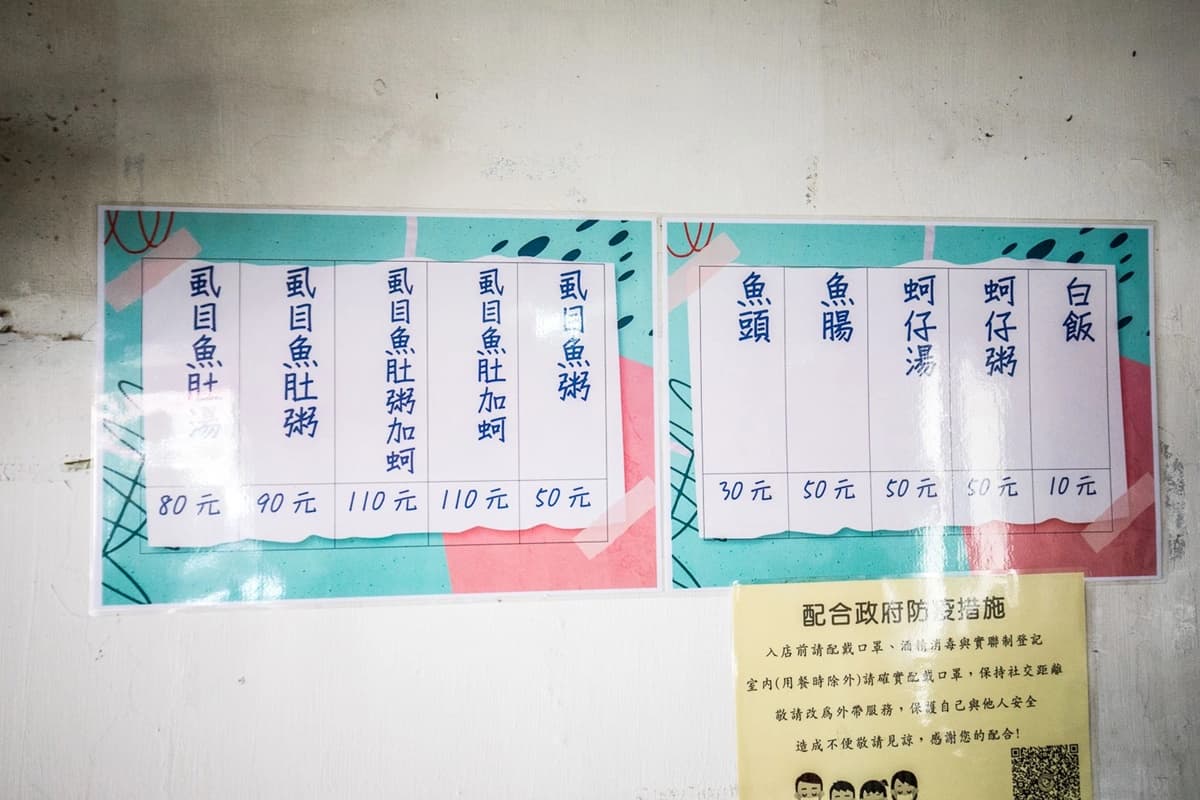 白飯
10元
蚵仔粥
50元
蚵仔湯
50元
魚腸
50元
魚頭
30元
虱目魚粥
50元
虱目魚肚加蚵
110元
虱目魚肚粥加蚵
110元
虱目魚肚粥
90元
虱目魚肚湯
80元
配合政府防疫措施
入店前請配戴口罩、酒精消毒與實聯制登記
室內(用餐時除外)請確實配戴口罩，保持社交距離
敬請改為外帶服務，保護自己與他人安全
造成不便敬請見諒，感謝您的配合!